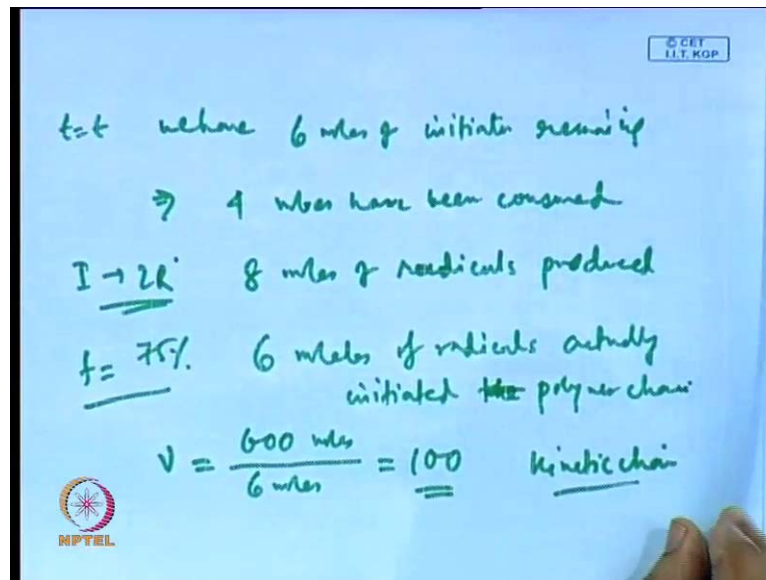 © CET
I.I.T. KGP
t=t we have 6 moles of initiator remaining
⇒ 4 moles have been consumed
I → 2R· 8 moles of radicals produced
f = 75%. 6 moles of radicals actually
initiated polymer chain
ν = 600 moles / 6 moles = 100 Kinetic chain
NPTEL